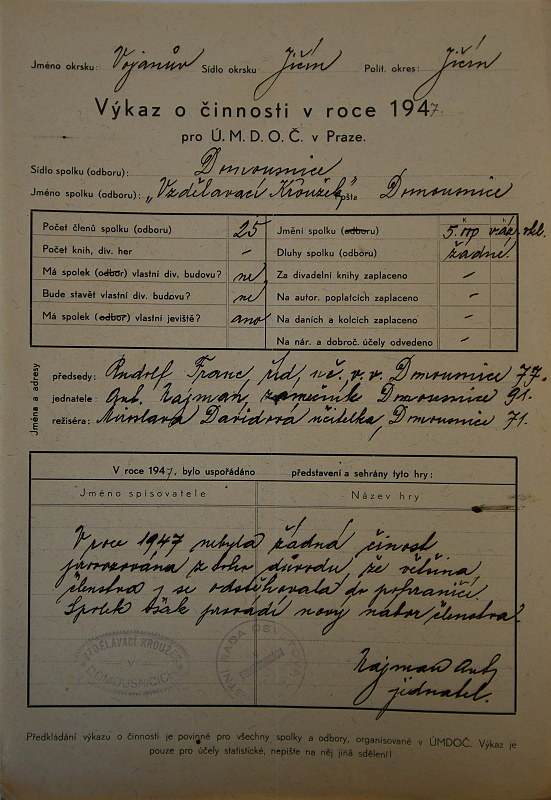 Jméno okrsku: Vojanův Sídlo okrsku Jičín Polit. okres: Jičín
Výkaz o činnosti v roce 1947.
pro Ú. M. D. O. Č. v Praze.
Sídlo spolku (odboru): Domousnice
Jméno spolku (odboru): „Vzdělavací Kroužek“ pošta Domousnice
Počet členů spolku (odboru) 25 Jmění spolku (odboru) 5.100 váz. vkl.
Počet knih, div. her – Dluhy spolku (odboru) žádné!
Má spolek (odbor) vlastní div. budovu? ne Za divadelní knihy zaplaceno –
Bude stavět vlastní div. budovu? ne Na autor. poplatcích zaplaceno –
Má spolek (odbor) vlastní jeviště? ano Na daních a kolcích zaplaceno –
Na nár. a dobroč. účely odvedeno –
Jména a adresy
předsedy: Rudolf Franc, říd. uč. v. v. Domousnice 77.
jednatele: Ant. Najman, zámečník Domousnice 91.
režiséra: Miroslava Davidová učitelka, Domousnice 71.
V roce 1947, bylo uspořádáno představení a sehrány tyto hry:
Jméno spisovatele Název hry
V roce 1947 nebyla žádná činost
provozována z toho důvodu, že většina
členstva j se odstěhovala do pohraničí.
Spolek však provádí nový nábor členstva.
VZDĚLAVACÍ KROUŽEK
V
DOMOUSNICÍCH
MÍSTNÍ RADA OSVĚTOVÁ
Najman Ant.
jednatel.
Předkládání výkazu o činnosti je povinné pro všechny spolky a odbory, organisované v ÚMDOČ. Výkaz je
pouze pro účely statistické, nepište na něj jiná sdělení!